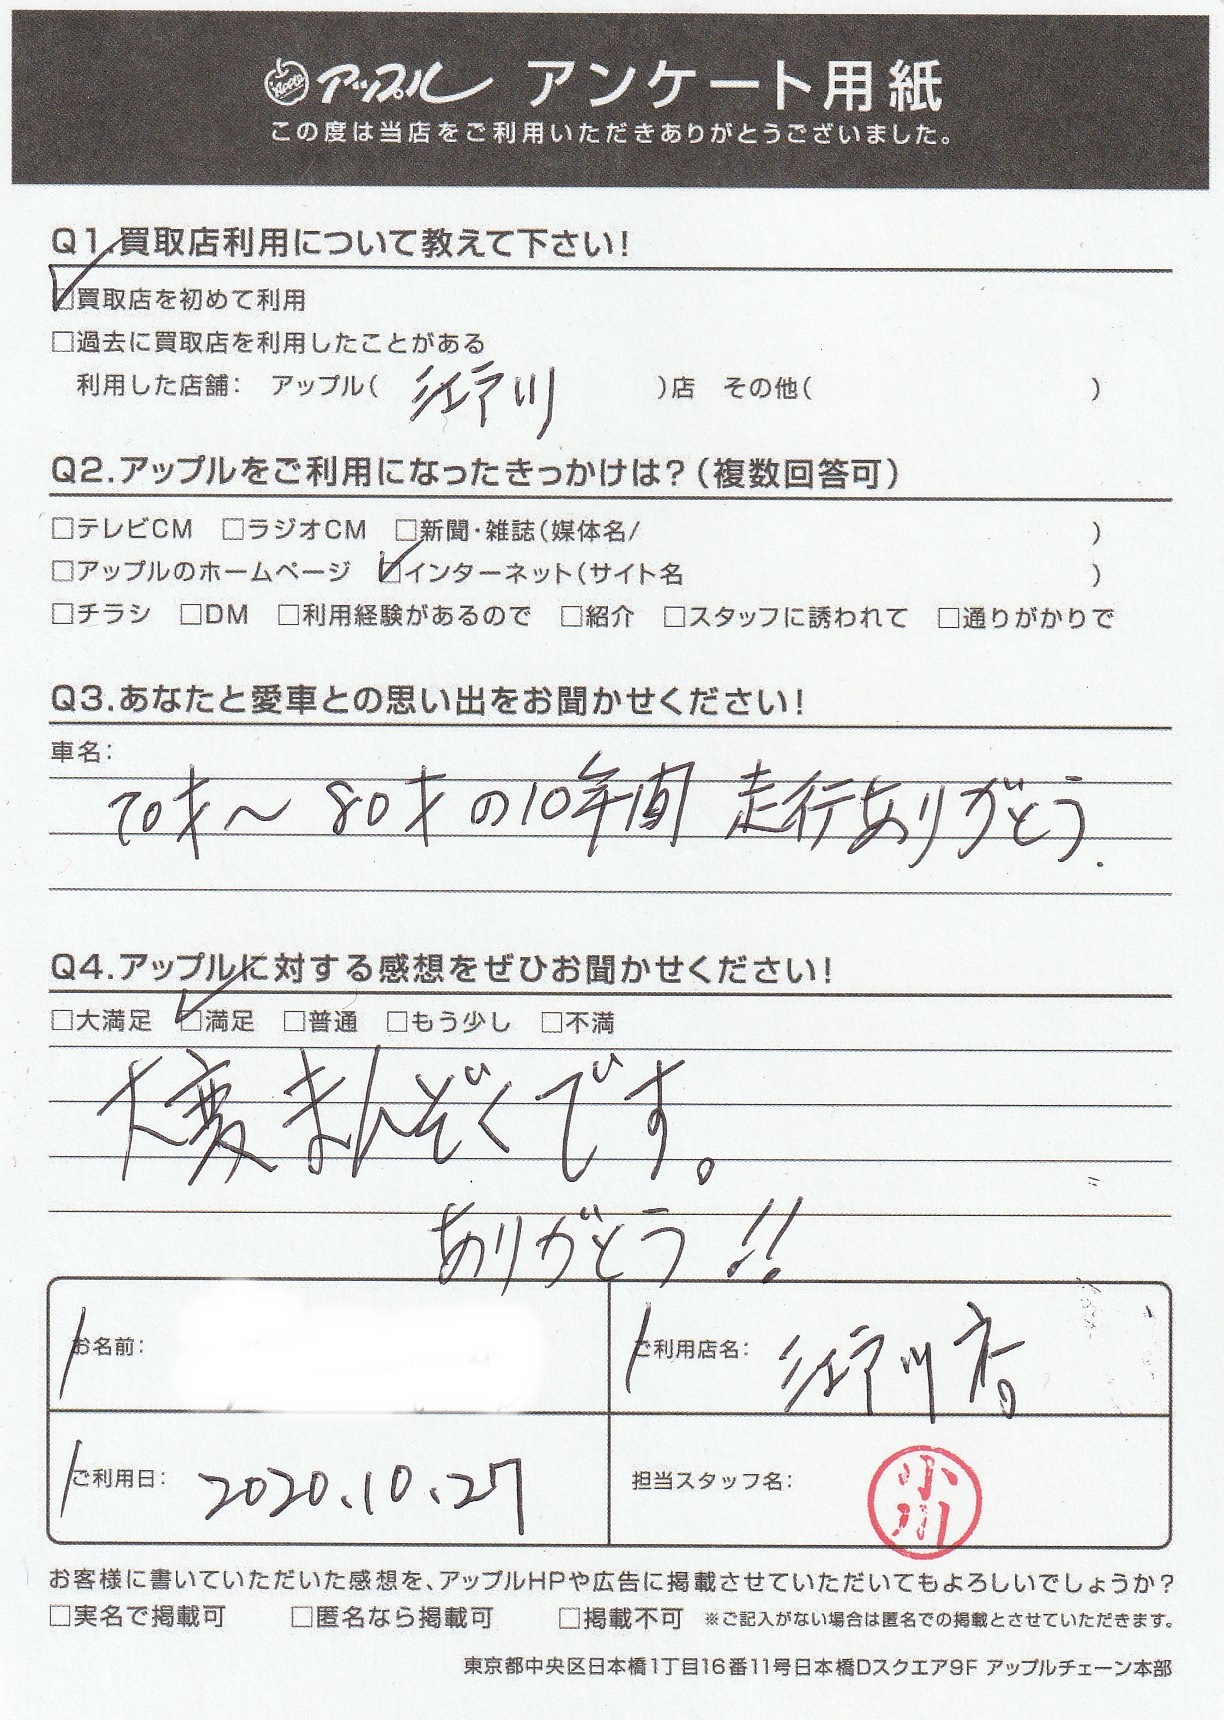 アップル アンケート用紙
この度は当店をご利用いただきありがとうございました。
Q1.買取店利用について教えて下さい!
□買取店を初めて利用
□過去に買取店を利用したことがある
利用した店舗: アップル( 江戸川 )店 その他( )
Q2.アップルをご利用になったきっかけは?(複数回答可)
□テレビCM □ラジオCM □新聞・雑誌(媒体名/ )
□アップルのホームページ □インターネット(サイト名 )
□チラシ □DM □利用経験があるので □紹介 □スタッフに誘われて □通りがかりで
Q3.あなたと愛車との思い出をお聞かせください!
車名:
70才〜80才の10年間 走行ありがとう.
Q4.アップルに対する感想をぜひお聞かせください!
□大満足 □満足 □普通 □もう少し □不満
大変まんぞくです。
ありがとう!!
お名前:
ご利用店名: 江戸川店
ご利用日: 2020.10.27
担当スタッフ名: 小川
お客様に書いていただいた感想を、アップルHPや広告に掲載させていただいてもよろしいでしょうか?
□実名で掲載可 □匿名なら掲載可 □掲載不可 ※ご記入がない場合は匿名での掲載とさせていただきます。
東京都中央区日本橋1丁目16番11号日本橋Dスクエア9F アップルチェーン本部